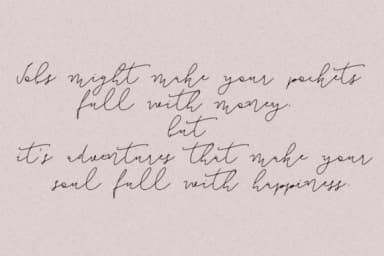 Jobs might make your pockets
full with money.
but
it's adventures that make your
soul full with happiness.